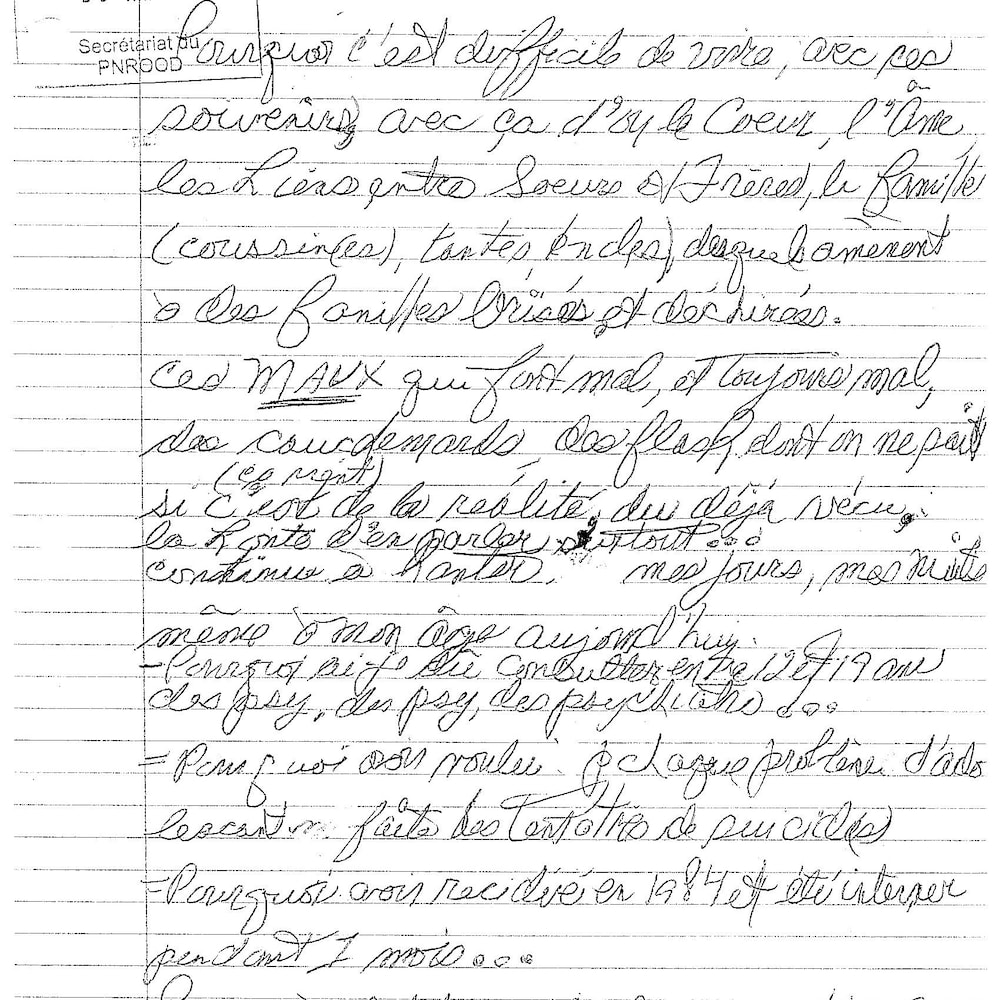 Secrétariat du
PNROOD
Pourquoi c'est difficile de vivre, avec ces
souvenirs, avec ça d'ou le Coeur, l'Âme,
les Liens entre Soeurs et Frères, la famille
(coussin(es), tantes, oncles), desquels amènent
à des familles brisés et déchirés.
ces MAUX qui font mal, et toujours mal,
des cauchemards, des flash, dont on ne sait
(ce vrait)
si c'est de la réalité, du déjà vécu,
la honte d'en parler surtout...
continue à hanter. mes jours, mes nuits
même à mon âge aujourd'hui.
- Pourquoi ai-je dû consulter entre 12 et 19 ans
des psy, des psy, des psychiatre...
= Pourquoi avoir voulu à chaque problème d'ado
lescent faite des tentatives de suicide(s)
- Pourquoi avoir recidivé en 1984 et été interner
pendant 1 mois...